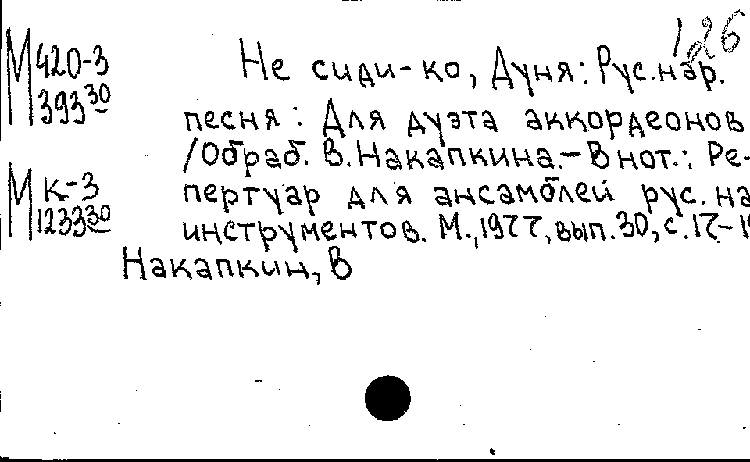 1,26
М 420-3
393 30
Не сиди-ко, Дуня: Рус.нар.
песня: Для дуэта аккордеонов
/Обраб. В.Накапкина.-В нот.: Ре-
М К-3
1233 30
пертуар для ансамблей рус. на
инструментов. М.,1977, вып.30, с.17-1
Накапкин, В